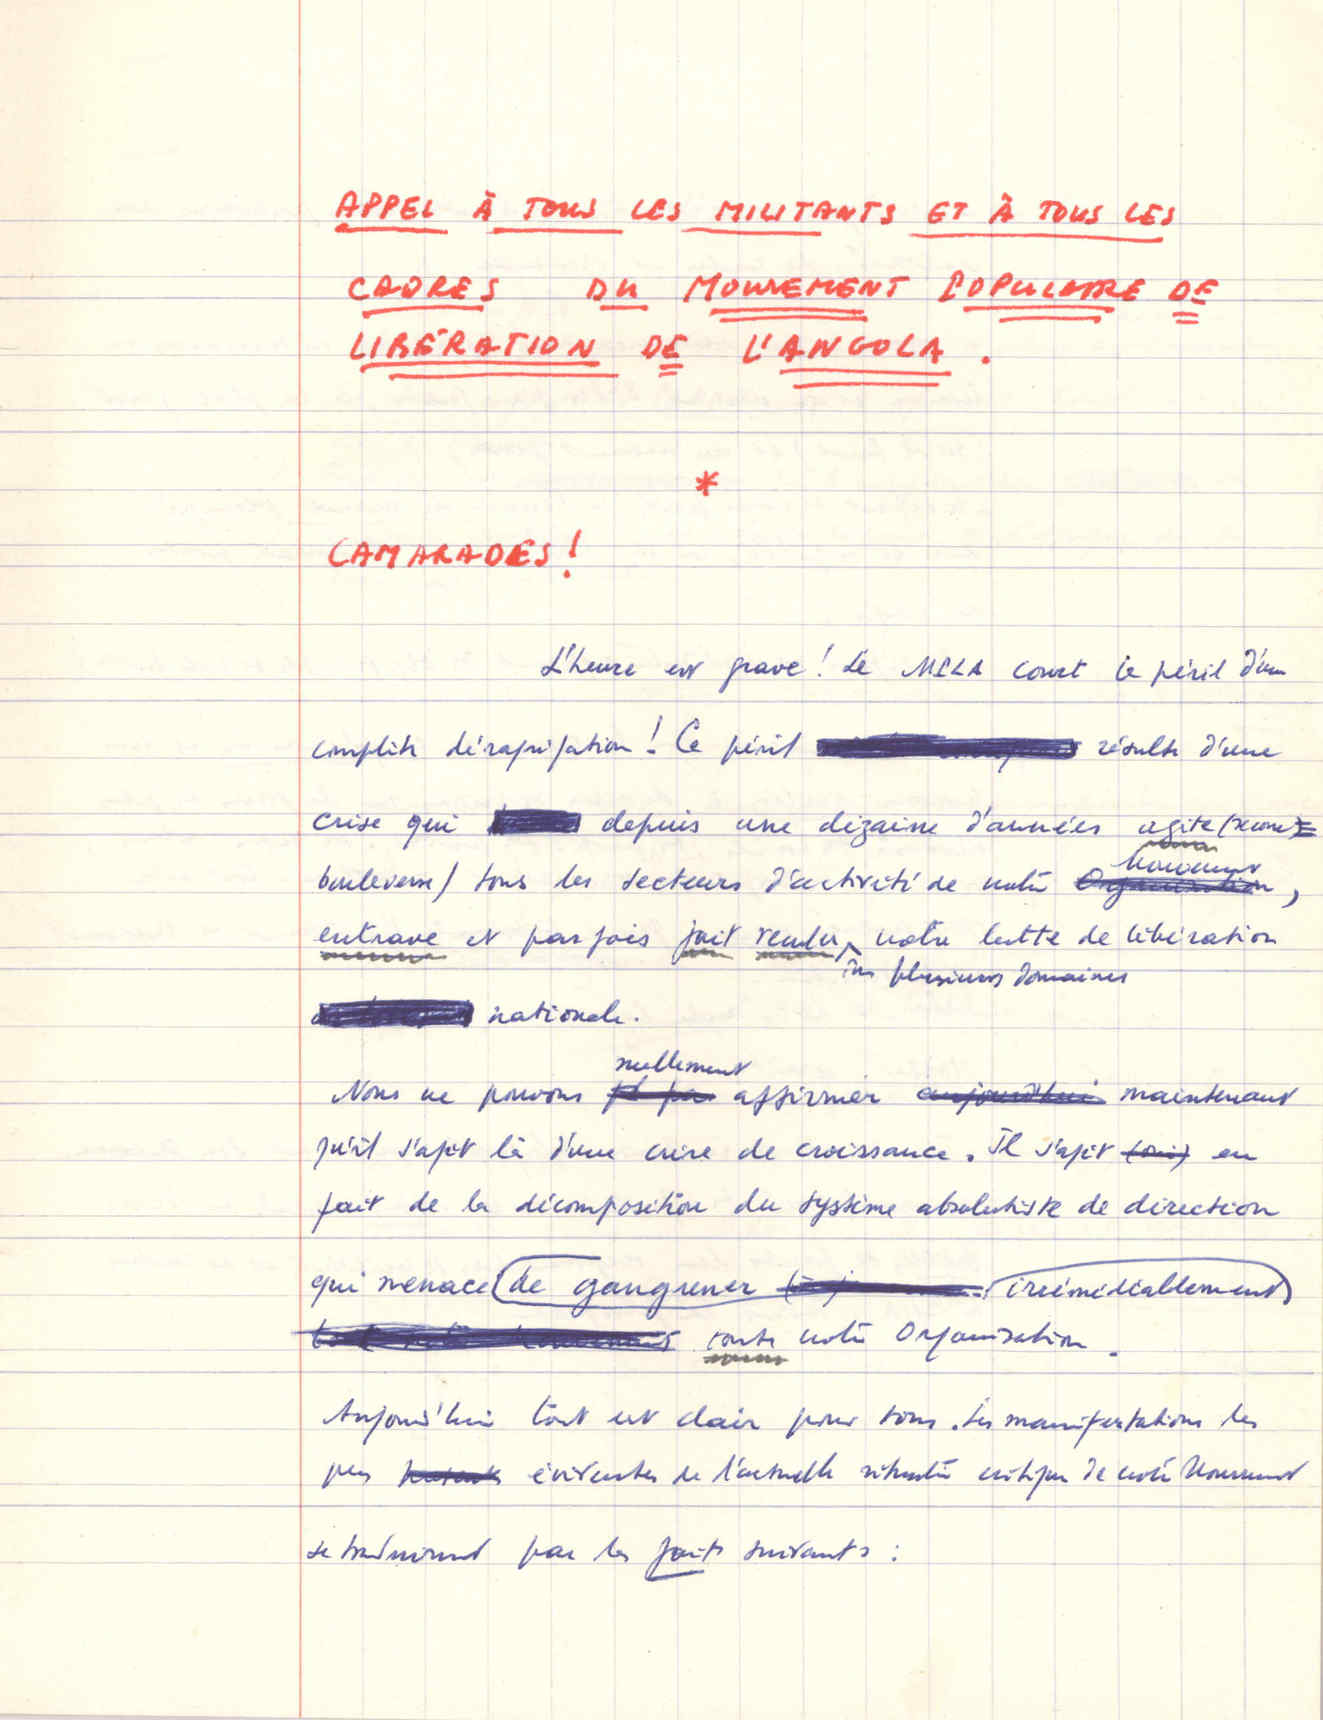 APPEL À TOUS LES MILITANTS ET À TOUS LES
CADRES DU MOUVEMENT POPULAIRE DE
LIBÉRATION DE L'ANGOLA.
*
CAMARADES !
L'heure est grave ! Le MPLA court le péril d'une
complète désagrégation ! Ce péril résulte d'une
crise qui depuis une dizaine d'années agite (secoue =
bouleverse) tous les secteurs d'activité de notre Organisation,
Mouvement
entrave et parfois fait reculer notre lutte de libération
en plusieurs domaines
nationale.
nullement
Nous ne pouvons affirmer aujourd'hui maintenant
qu'il s'agit là d'une crise de croissance. Il s'agit (oui) en
fait de la décomposition du système absolutiste de direction
qui menace de gangrener irrémédiablement
toute notre Organisation.
Aujourd'hui tout est clair pour tous. Les manifestations les
plus évidentes de l'actuelle situation critique de notre Mouvement
se traduisent par les faits suivants :